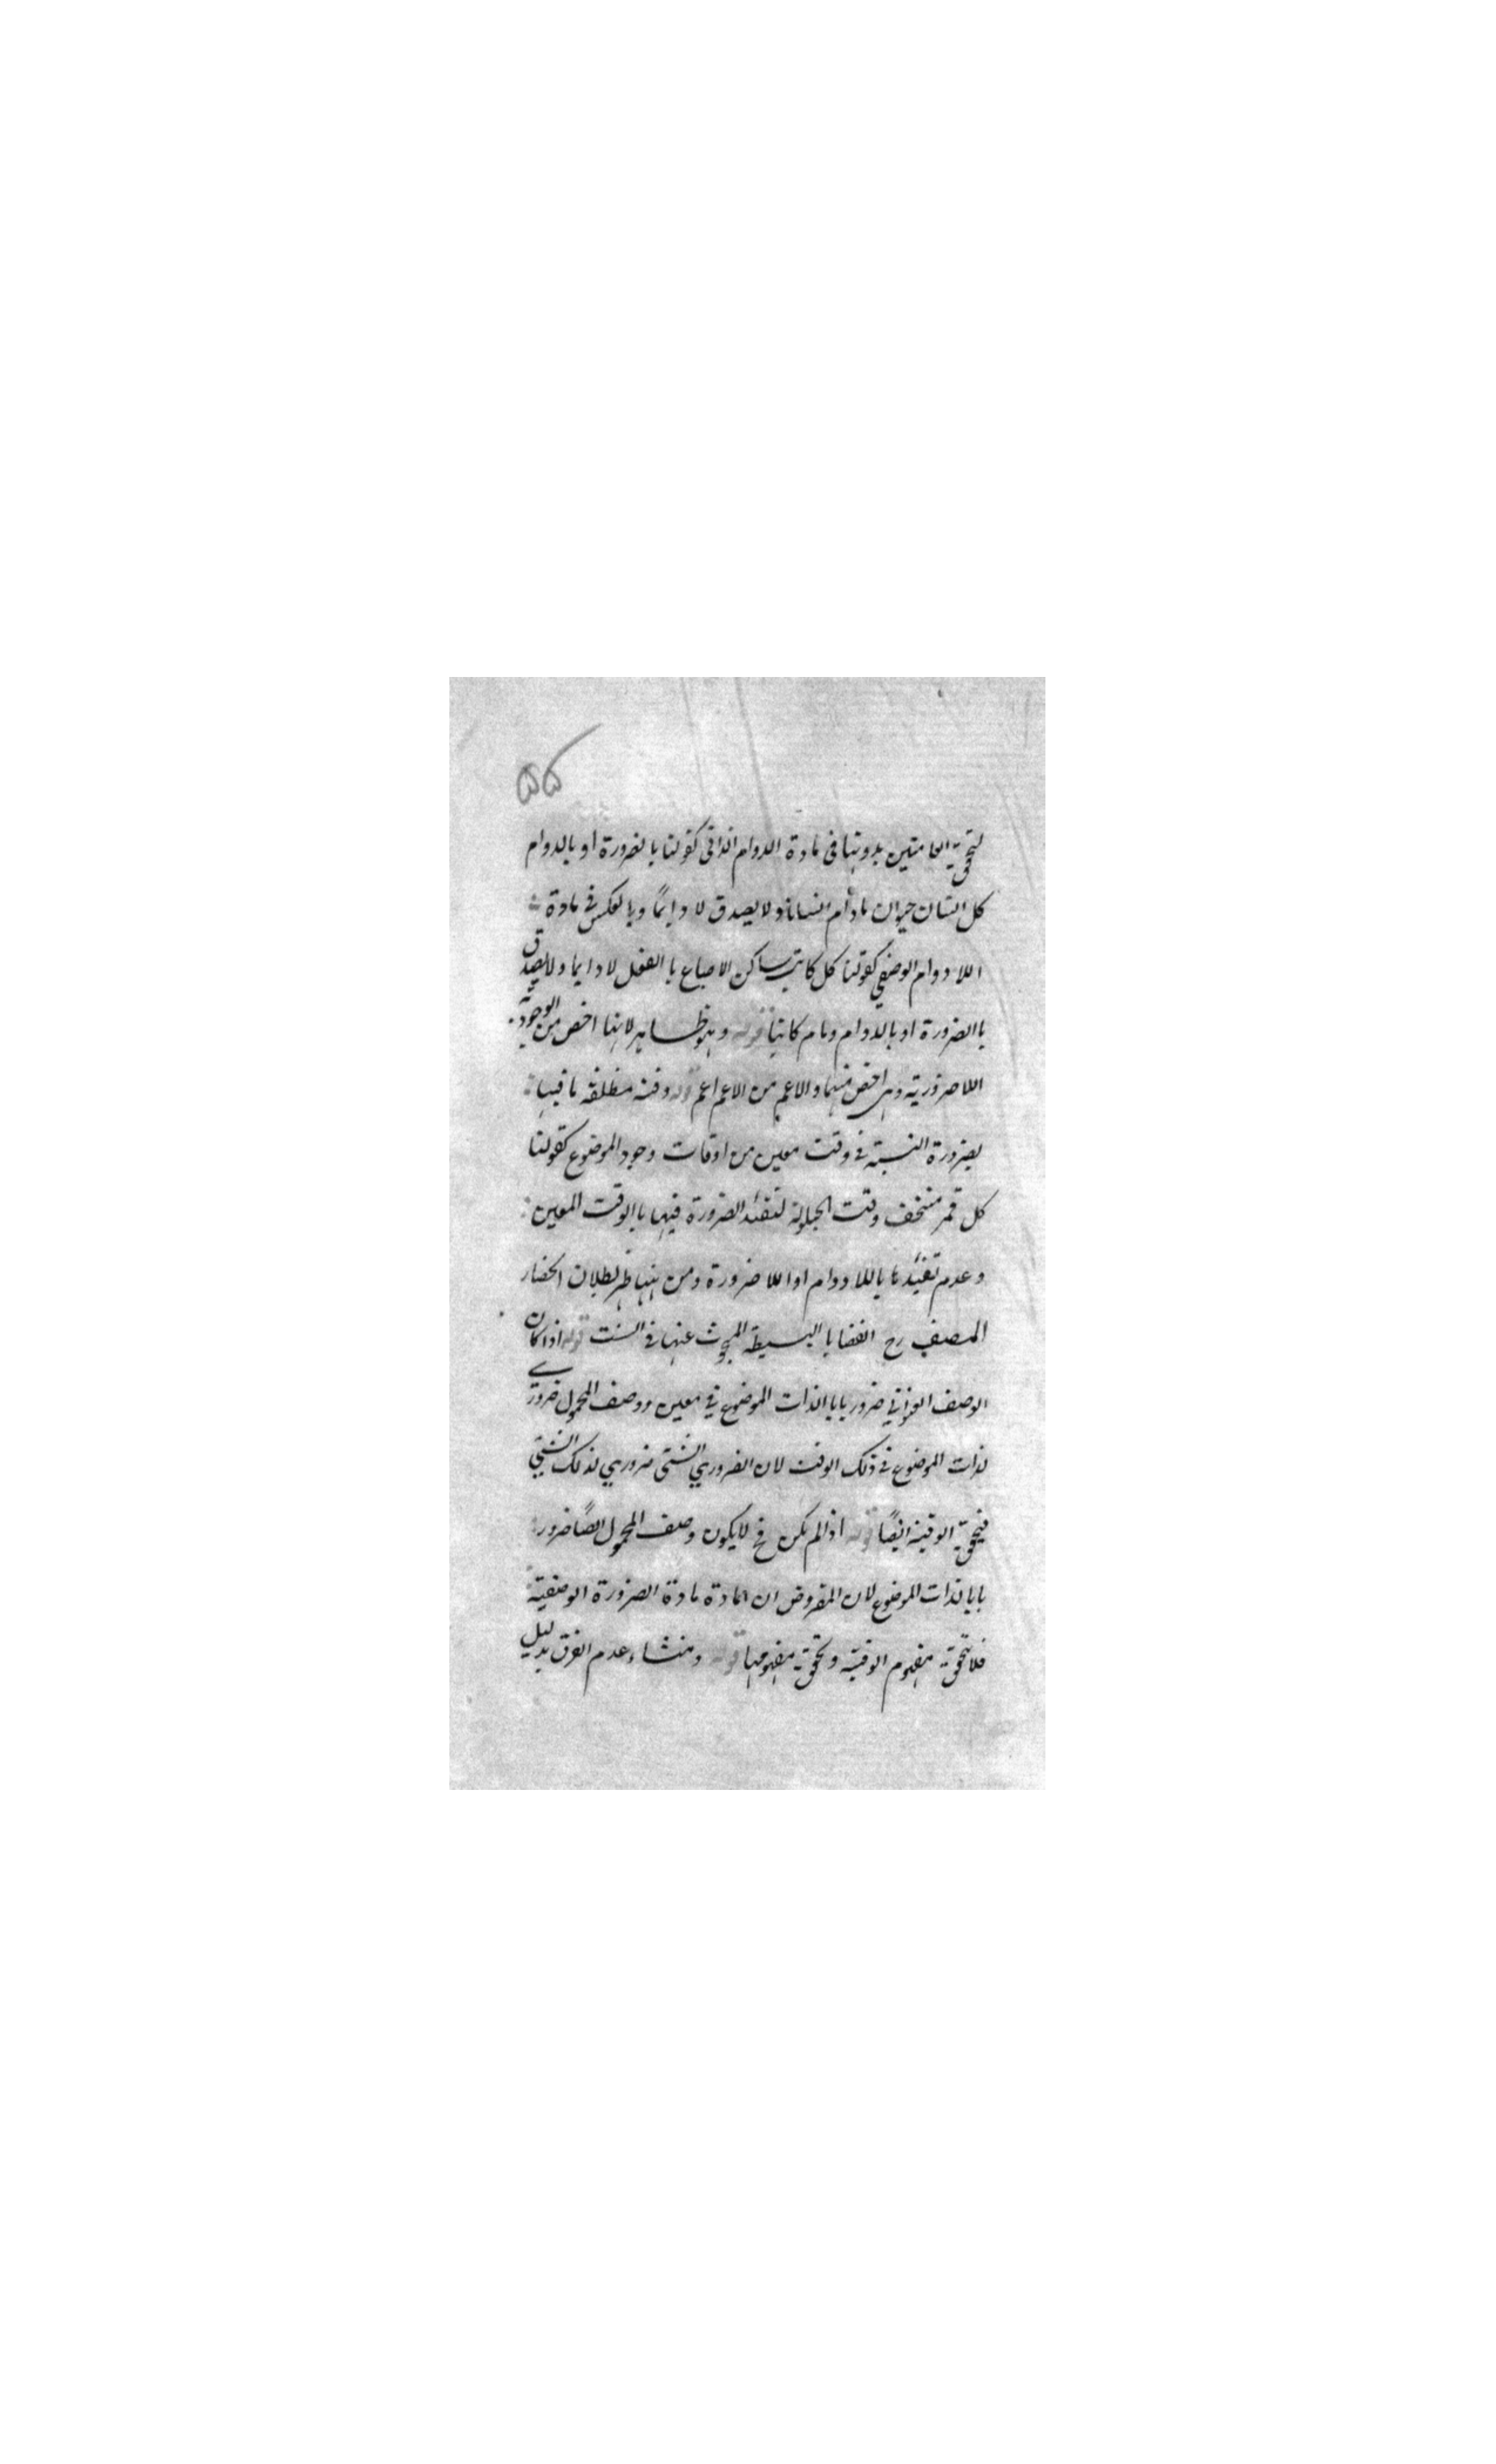 ۵۵
لتحقق العامتين بدونها فى مادة الدوام الذاتى كقولنا بالضرورة او بالدوام
كل انسان حيوان مادام انسانا ولا يصدق لا دائمًا وبالعكس فى مادة
اللا دوام الوصفي كقولنا كل كاتب ساكن الاصابع با الفعل لا دايما ولا يصدق
با الضرورة او بالدوام مادام كاتبا قوله وهو ظاهر لانها اخص من الوجودية
اللاضرورية وهى اخص منهما والاعم من الاعم اعم قوله وقتية مطلقة ما فيها
بضرورة النسبة في وقت معين من اوقات وجود الموضوع كقولنا
كل قمر منخسف وقت الحيلولة لتقيد الضرورة فيها باالوقت المعين
وعدم تقيدها باللا دوام او اللا ضرورة ومن ههنا ظهر بطلان انحصار
المصنف رح القضايا البسيطة المبحوث عنها في الست قوله اذا كان
الوصف العنواني ضروريا بالذات الموضوع في معين ووصف المحمول ضروري
لذات الموضوع فى ذلك الوقت لان الضروري للشئ ضروري لذلك الشئ
فيتحقق الوقتية ايضًا قوله اذا لم يكن ح لا يكون وصف المحمول ايضًا ضرور
يا بالذات الموضوع لان المفروض ان المادة مادة الضرورة الوصفية
فلا يتحقق مفهوم الوقتية وتحقق مفهومها قوله ومنشاء عدم الفرق بدليل